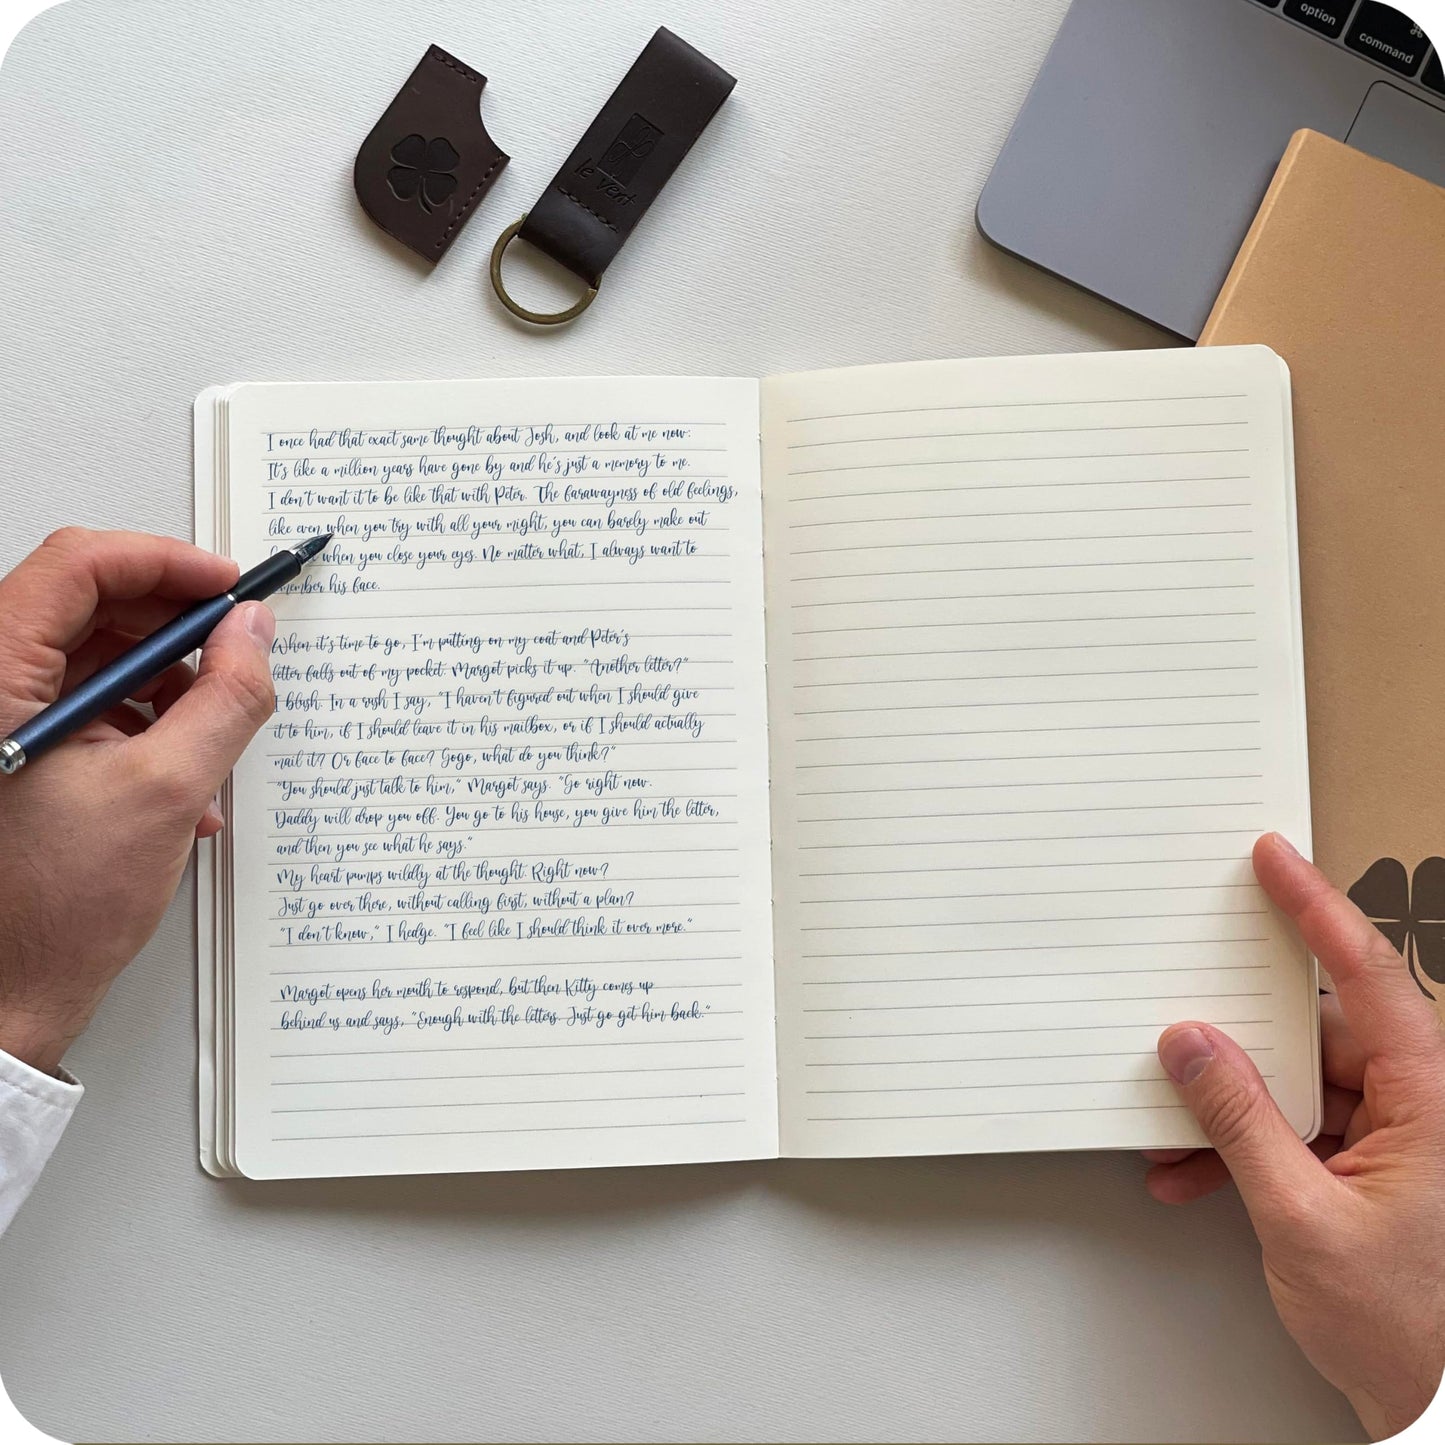 option
command
le vent
I once had that exact same thought about Josh, and look at me now:
It's like a million years have gone by and he's just a memory to me.
I don't want it to be like that with Peter. The farawayness of old feelings,
like even when you try with all your might, you can barely make out
when you close your eyes. No matter what, I always want to
his face.
When it's time to go, I'm putting on my coat and Peter's
letter falls out of my pocket. Margot picks it up. "Another letter?"
I blush. In a rush I say, "I haven't figured out when I should give
it to him, if I should leave it in his mailbox, or if I should actually
mail it? Or face to face? Gogo, what do you think?"
"You should just talk to him," Margot says. "Go right now.
Daddy will drop you off. You go to his house, you give him the letter,
and then you see what he says."
My heart pumps wildly at the thought. Right now?
Just go over there, without calling first, without a plan?
"I don't know," I hedge. "I feel like I should think it over more."
Margot opens her mouth to respond, but then Kitty comes up
behind us and says, "Enough with the letters. Just go get him back."